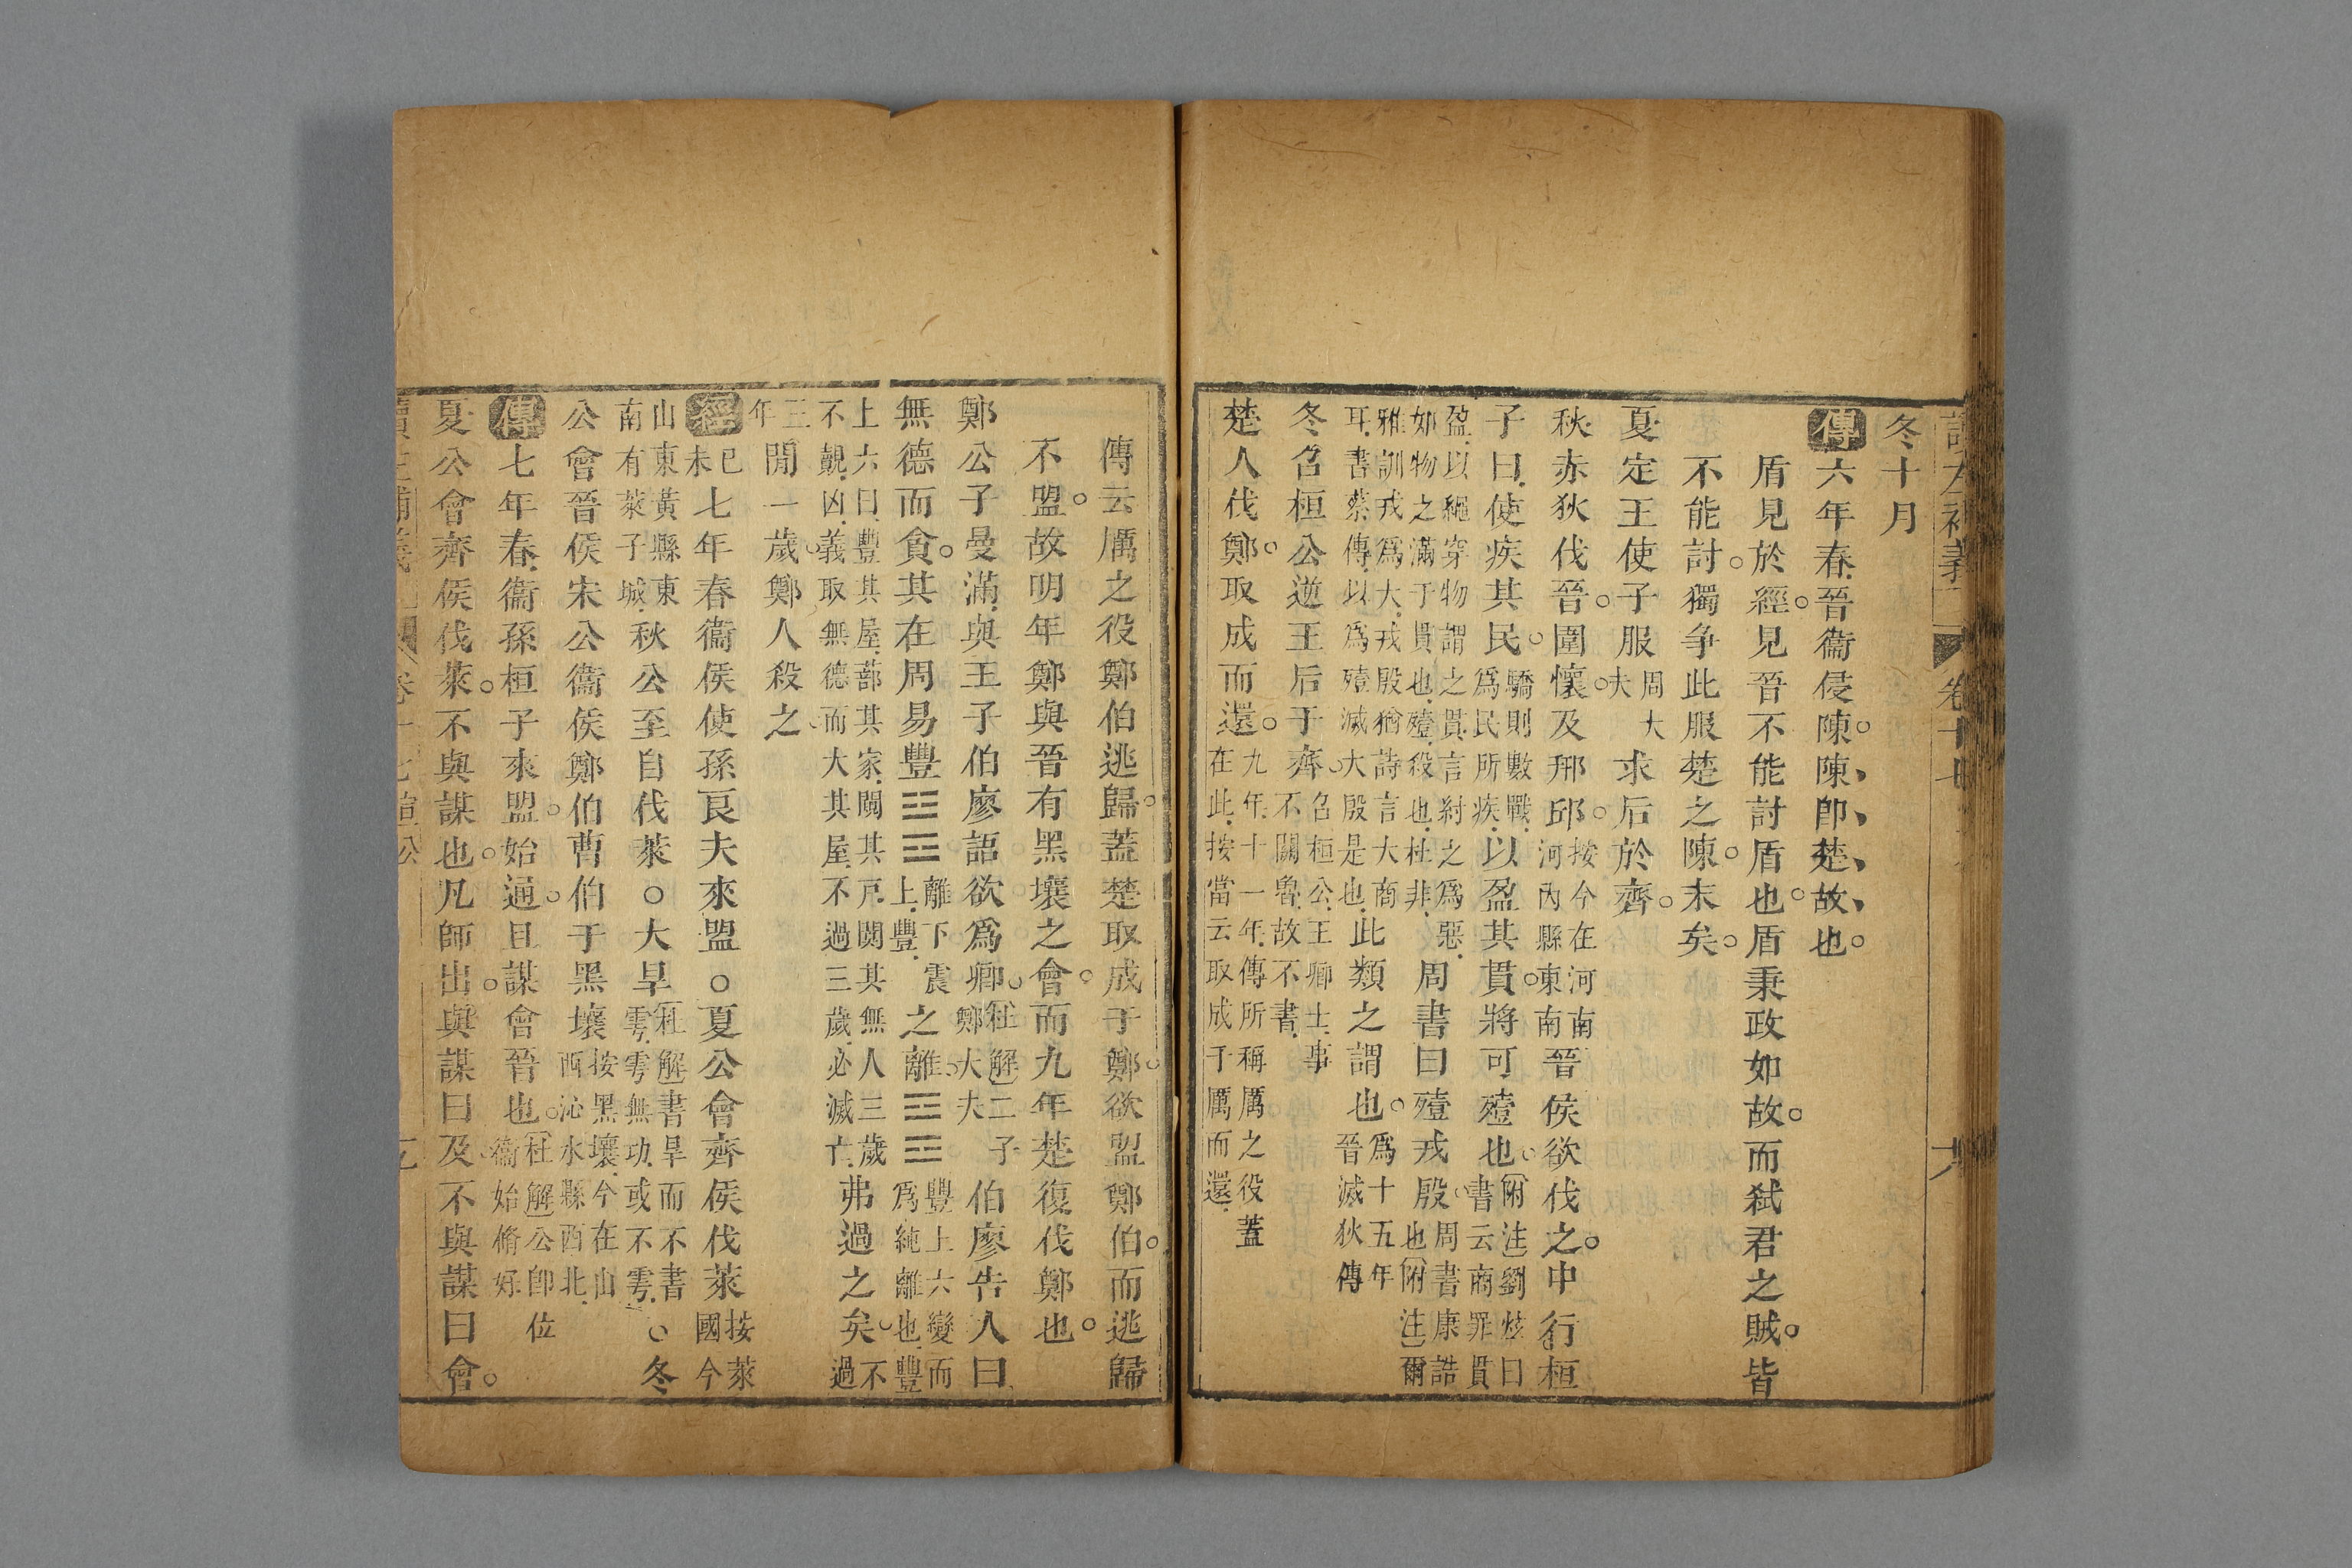 冬十月
傳六年春晉衞侵陳陳卽楚故也
盾見於經見晉不能討盾也盾秉政如故而弒君之賊皆
不能討獨争此服楚之陳末矣
夏定王使子服周大夫求后於齊
秋赤狄伐晉圍懷及邢邱按今在河南河內縣東南晉侯欲伐之中行桓
子曰使疾其民驕則數戰爲民所疾以盈其貫將可殪也附注劉炫曰書云商罪貫
盈以繩穿物謂之貫言紂之爲惡如物之滿于貫也殪殺也杜非周書曰殪戎殷周書康誥也附注爾
雅訓戎爲大戎殷猶詩言大商耳書蔡傳以爲殪滅大殷是也此類之謂也爲十五年晉滅狄傳
冬召桓公逆王后于齊召桓公王卿士事不關魯故不書
楚人伐鄭取成而還九年十一年傳所稱厲之役蓋在此按當云取成于厲而還
傳云厲之役鄭伯逃歸蓋楚取成于鄭欲盟鄭伯而逃歸
不盟故明年鄭與晉有黑壤之會而九年楚復伐鄭也
鄭公子曼滿與王子伯廖語欲爲卿杜解二子鄭大夫伯廖告人曰
無德而貪其在周易豐䷶離下震上豐之離䷝豐上六變而爲純離也豐
上六曰豐其屋蔀其家闚其戶闃其無人三歲不覿凶義取無德而大其屋不過三歲必滅亡弗過之矣不過
三年閒一歲鄭人殺之
經己未七年春衞侯使孫良夫來盟○夏公會齊侯伐萊按萊國今
山東黃縣東南有萊子城秋公至自伐萊○大旱杜解書旱而不書雩雩無功或不雩○冬
公會晉侯宋公衞侯鄭伯曹伯于黑壤按黑壤今在山西沁水縣西北
傳七年春衞孫桓子來盟始通且謀會晉也杜解公卽位衞始脩好
夏公會齊侯伐萊不與謀也凡師出與謀曰及不與謀曰會